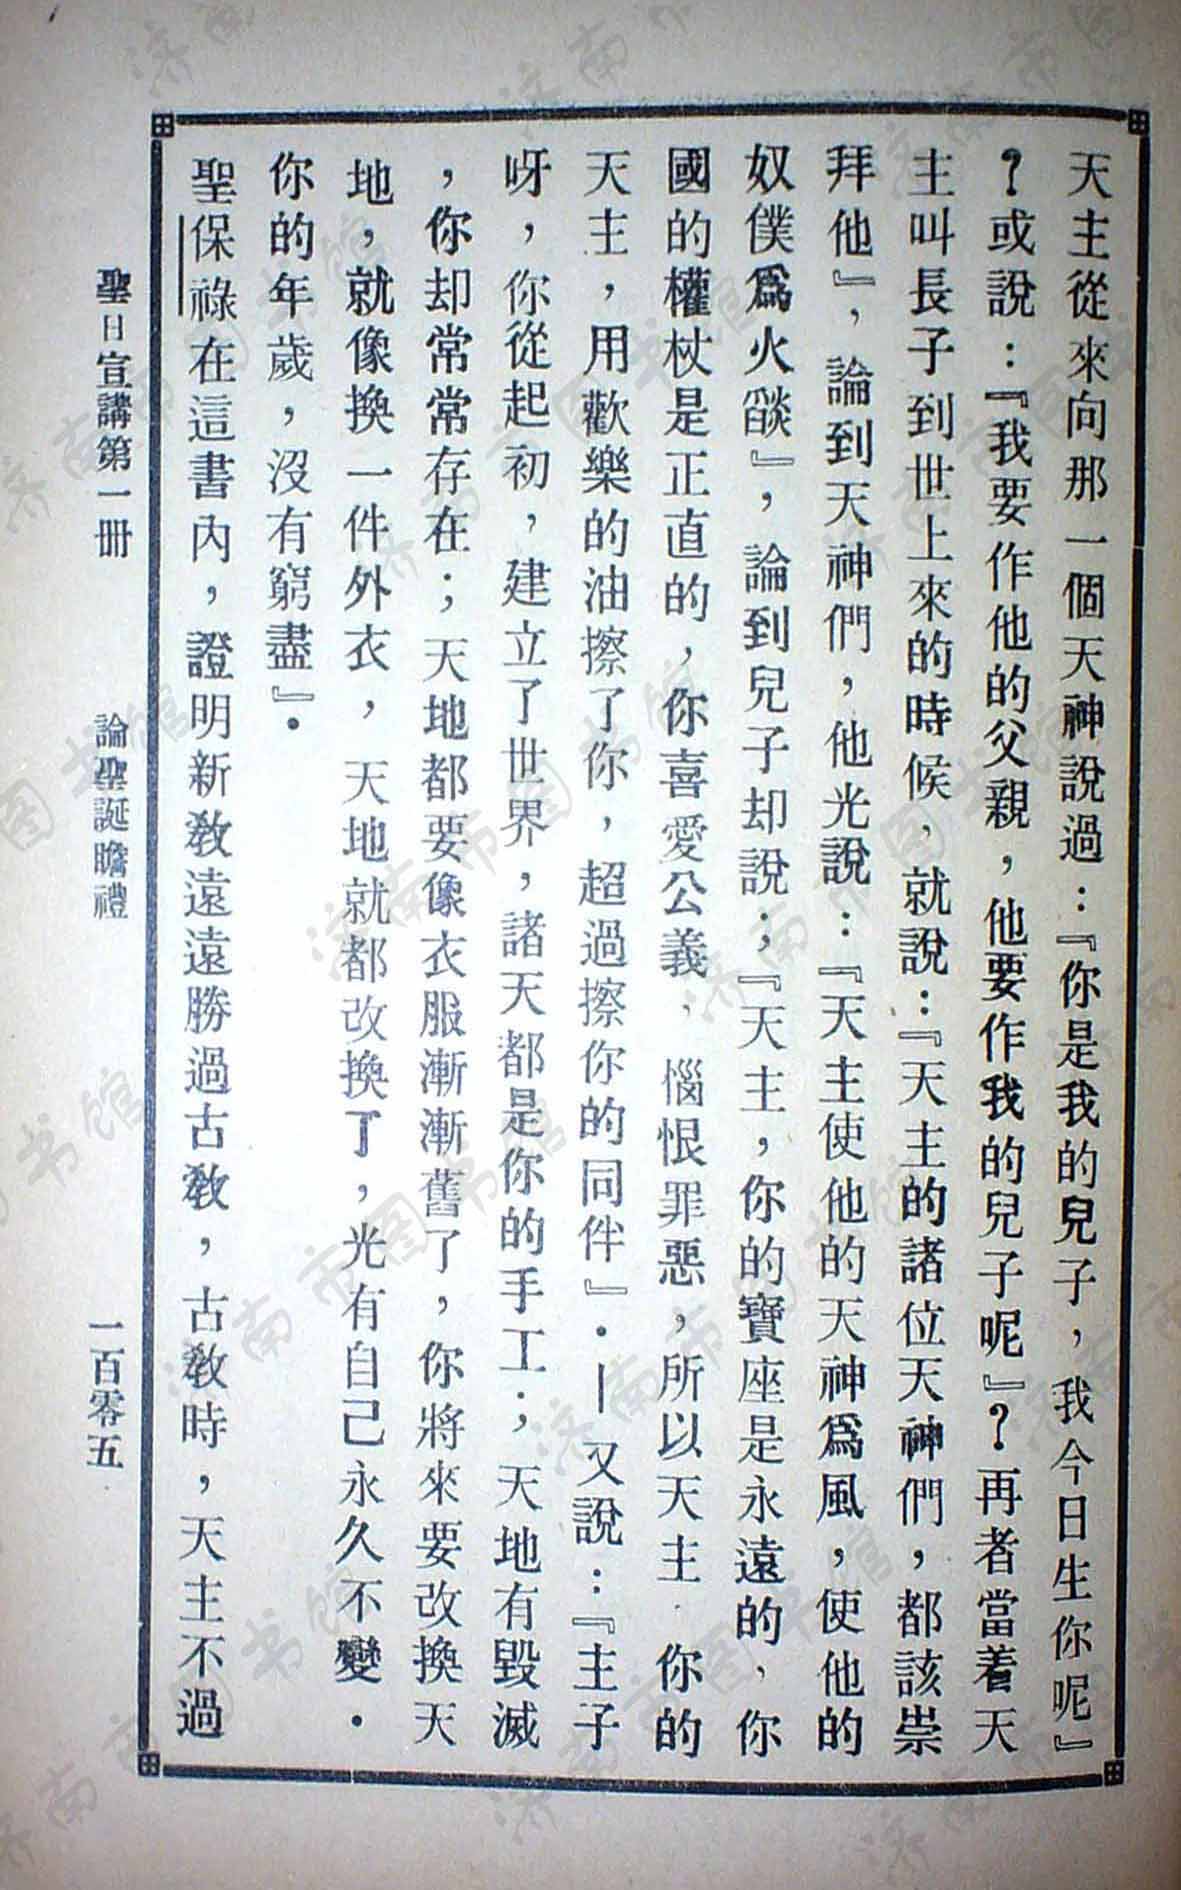 天主從來向那一個天神說過：『你是我的兒子，我今日生你呢』
？或說：『我要作他的父親，他要作我的兒子呢』？再者當着天
主叫長子到世上來的時候，就說：『天主的諸位天神們，都該崇
拜他』，論到天神們，他光說：『天主使他的天神爲風，使他的
奴僕爲火燄』，論到兒子却說；『天主，你的寶座是永遠的，你
國的權杖是正直的，你喜愛公義，惱恨罪惡，所以天主，你的
天主，用歡樂的油擦了你，超過擦你的同伴』．—又說：『主子
呀，你從起初，建立了世界，諸天都是你的手工；天地有毀滅
，你却常常存在；天地都要像衣服漸漸舊了，你將來要改換天
地，就像換一件外衣，天地就都改換了，光有自己永久不變．
你的年歲，沒有窮盡』．
聖保祿在這書內，證明新敎遠遠勝過古敎，古敎時，天主不過
聖日宣講第一冊　論聖誕瞻禮　一百零五
济南市图书馆